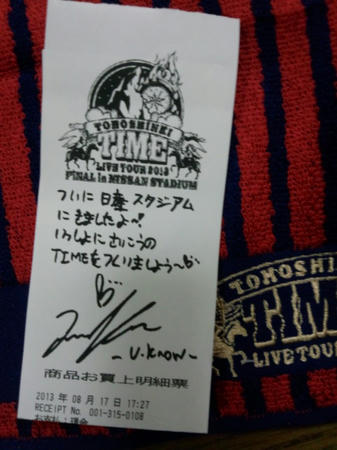 TOHOSHINKI
TIME
LIVE TOUR 2013
FINAL in NISSAN STADIUM
ついに日産スタジアム
にきましたよ〜!
いっしょにさいこうの
TIMEをつくりましょう〜
-U.know-
商品お買上明細票
2013年 08月 17日 17:27
RECEIPT No. 001-315-0108
お支払:現金
TOHOSHINKI
TIME
LIVE TOUR